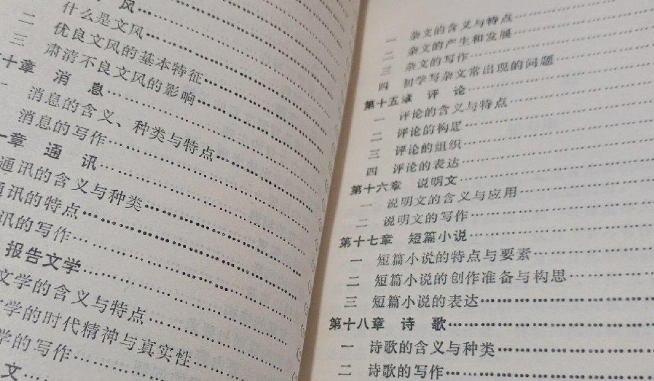 风
什么是文风
二 优良文风的基本特征
三 肃清不良文风的影响
十章 消 息
一 消息的含义、种类与特点
消息的写作
一章 通 讯
通讯的含义与种类
通讯的特点
讯的写作
报告文学
文学的含义与特点
文学的时代精神与真实性
学的写作
文
一 杂文的含义与特点
二 杂文的产生和发展
三 杂文的写作
四 初学写杂文常出现的问题
第十五章 评 论
一 评论的含义与特点
二 评论的构思
三 评论的组织
四 评论的表达
第十六章 说明文
一 说明文的含义与应用
二 说明文的写作
第十七章 短篇小说
一 短篇小说的特点与要素
二 短篇小说的创作准备与构思
三 短篇小说的表达
第十八章 诗 歌
一 诗歌的含义与种类
二 诗歌的写作